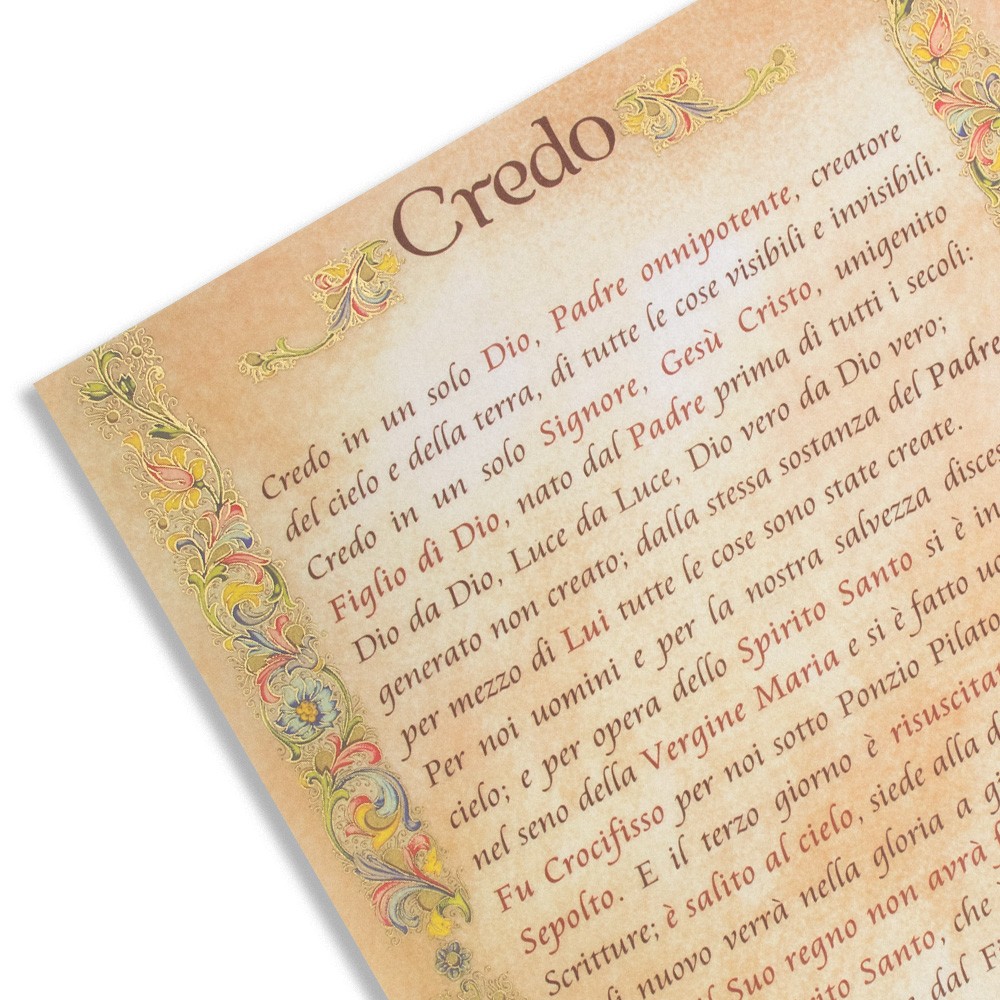 Credo
Credo in un solo Dio, Padre onnipotente, creatore
del cielo e della terra, di tutte le cose visibili e invisibili.
Credo in un solo Signore, Gesù Cristo, unigenito
Figlio di Dio, nato dal Padre prima di tutti i secoli:
Dio da Dio, Luce da Luce, Dio vero da Dio vero;
generato non creato; dalla stessa sostanza del Padre
per mezzo di Lui tutte le cose sono state create.
Per noi uomini e per la nostra salvezza
cielo; e per opera dello Spirito Santo si è
nel seno della Vergine Maria e si è fatto
Fu Crocifisso per noi sotto Ponzio Pilato
Sepolto. E il terzo giorno è
Scritture; è salito al cielo, siede alla
nuovo verrà nella gloria a
Suo regno non avrà
Santo, che
dal